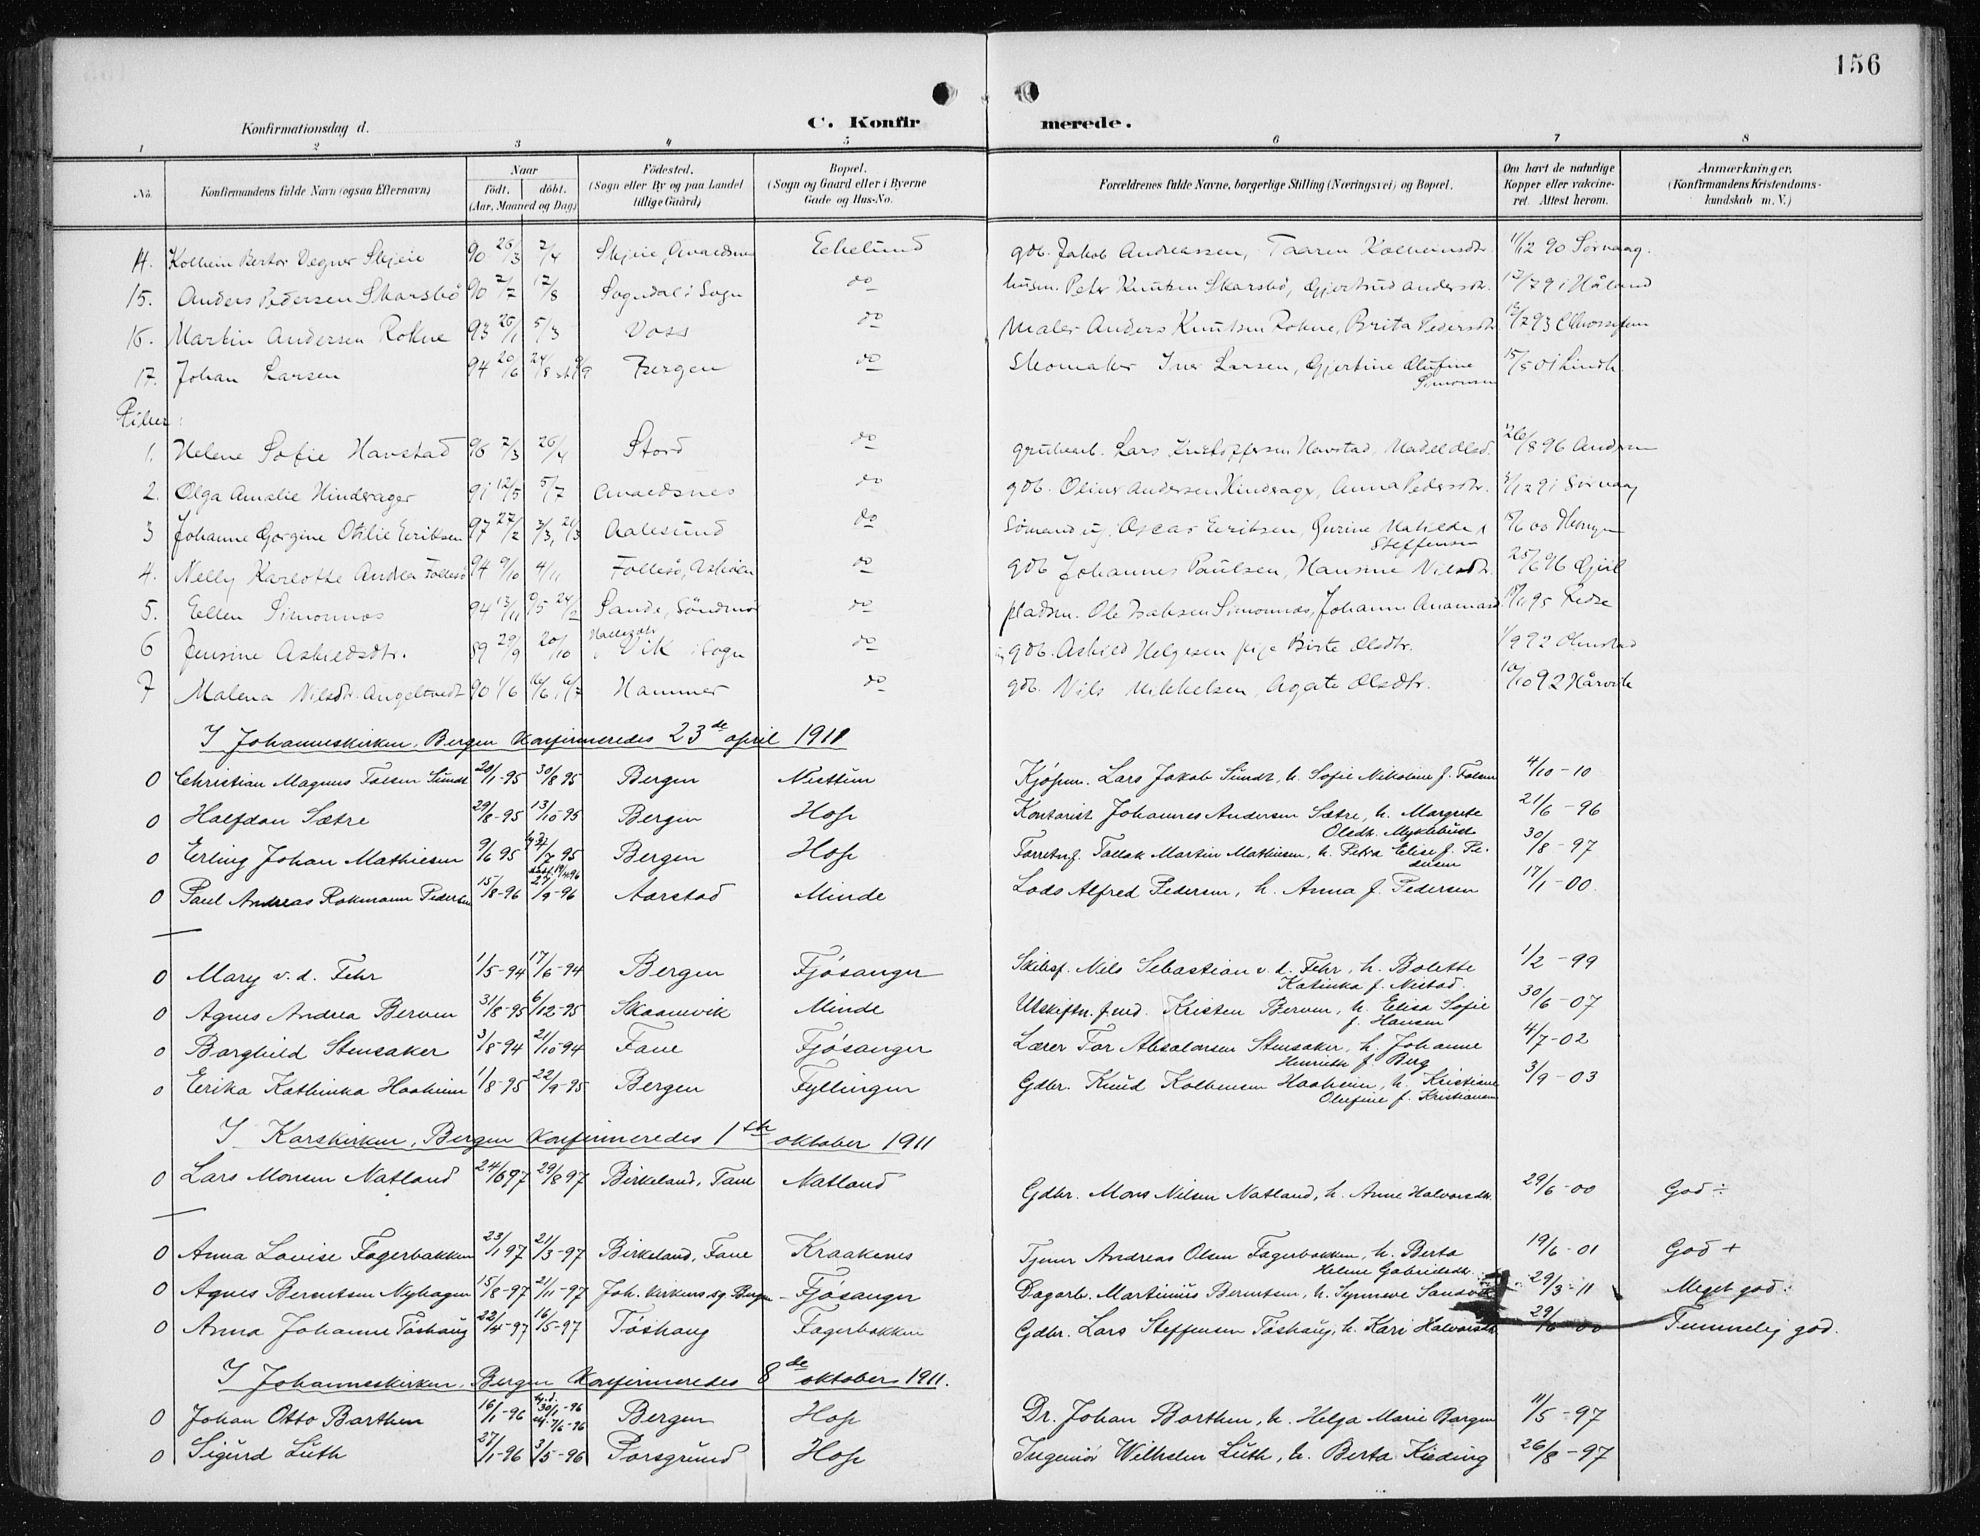 156
Konfirmationsdag d.
C. Konfir merede.
1 2 3 4 5 6 7 8
No. Konfirmandens fulde Navn (ogsaa Efternavn)
Naar födt. döbt. (Aar, Maaned og Dag)
Födested. (Sogn eller By og paa Landet tillige Gaard)
Bopæl. (Sogn og Gaard eller i Byerne Gade og Hus-No.
Forældrenes fulde Navne, borgerlige Stilling (Næringsvei) og Bopæl.
Om havt de naturlige Kopper eller vakcineret. Attest herom.
Anmærkninger. (Konfirmandens Kristendomskundskab m. V.)
14. Kolbein Bertov Vegner Skjeie 90 26/3 7/4 Skjeie, Avaldsnes Eekelund gdb. Jakob Andreassen, Taaren Kolbeinsdtr. 11/12 90 Sørvaag.
15. Anders Pedersen Skarsbö 90 2/7 17/8 Sogndal i Sogn do husm. Peter Knutsen Skarsbö, Gjertrud Andersdtr. 12/7 91 Håland
16. Martin Andersen Rokne 93 26/1 5/3 Voss do Maler Anders Knutsen Rokne, Brita Pedersdtr 12/7 93
17. Johan Larsen 94 20/6 24/8 Bergen do Skomaker Iver Larsen, Gjertine Olufine Simonsen 15/5 01 Lindh.
Piker:
1. Helene Sofie Havstad 96 7/3 26/4 Stord do grubearb. Lars Kristoffersen Havstad, Madel Olsd. 26/8 96 Andersen
2. Olga Amalie Hinderager 91 12/5 5/7 Avaldsnes do gdb. Oliver Andersen Hinderager, Anna Pedersdtr. 3/12 91 Sørvaag
3 Johanne Gorgine Otilie Eeriksen 97 27/2 3/3, 21/3 Aalesund do Sömand ug. Oscar Eeriksen, Gurine Matilde Steffensen
4. Nelly Karlotte Andrea Follesö 94 9/10 4/11 Follesö, Askøen do gdb Johannes Paulsen, Hansine Nilsdtr. 25/6 96 Gjeil
5. Eellen Simonnes 94 13/11 Sande, Söndmör do pladsm. Ole Isaksen Simonnes, Johanne Anamasd 95
6 Jensine Askildsdtr. 89 29/9 20/10 Vik i Sogn do gdb. Askild Helgesen pige Birte Olsdtr. 1/9 92 Olmstad
7 Malena Nilsdtr. Angeltvedt 90 1/6 16/6, 6/7 Hammer do gdb. Nils Mikkelsen, Agate Olsdtr. 10/10 92 Hårvik
I Johanneskirken, Bergen konfirmeredes 23de april 1911
0 Christian Magnus Falsen Sundt 20/1-95 30/8 95 Bergen Nesttun Kjöpm. Lars Jakob Sundt, h. Sofie Nikoline f. Falsen 4/10-10
0 Halfdan Sætre 29/8-95 13/10-95 Bergen Hop Kontorist Johannes Andersen Sætre, h. Margrete Olsdtr. Myklebust 21/6-96
0 Erling Johan Mathiesen 9/6 95 /7 95 Bergen Hop Forretnf. Tallak Martin Mathiesen, h. Petra Elise f. Pedersen 30/8-97
0 Paul Andreas Rokmann Pedersen 15/8-96 27/9-96 Aarstad Minde Lods Alfred Pedersen, h. Anna f. Pedersen 17/1-00.
0 Mary v. d. Fehr 1/5-94 17/6-94 Bergen Fjösanger Skibsf. Nils Sebastian v. d. Fehr, h. Bolette Katinka f. Nestad. 1/2-99
0 Agnes Andrea Berven 31/8-95 6/12-95 Skaanevik Minde Utskiftn. f.md. Kristen Berven, h. Elisa Sofie f. Hansen 30/6-07
0 Borghild Stensaker 3/8-94 21/10-94 Fane Fjösanger Lærer Tor Absalonsen Stensaker, h. Johanne Henriette f. Berg 4/7-02
0 Eerika Kathinka Haaheim 1/8-95 22/9-95 Bergen Fyllingen Gdbr. Knud Kolbensen Haaheim, h. Kristiane Olufine f. Kristiansen 3/9-03
I Korskirken, Bergen konfirmeredes 1ste oktober 1911
0 Lars Monsen Natland 24/6 97 29/8 97 Birkeland, Fane Natland Gdbr. Mons Nilsen Natland, h. Anne Halvorsdtr. 29/6-00 God ÷
0 Anna Lovise Fagerbakken 23/1 97 21/3-97 Birkeland, Fane Kraakenes Tjener Andreas Olsen Fagerbakken, h. Berta Helene Gabrielsdtr. 19/6-01 God +
0 Agnes Berentsen Nyhagen 15/8-97 21/11-97 Joh. kirkens sg. Bergen Fjösanger Dagarb. Martinius Berentsen, h. Synneve Sandvik 29/3-11 Meget god.
0 Anna Johanne Töshaug 22/4-97 16/5-97 Töshaug Fagerbakken Gdbr. Lars Steffensen Töshaug, h. Kari Halvorsdtr 29/6-00 Temmelig god.
I Johanneskirken, Bergen konfirmeredes 8de oktober 1911.
0 Johan Otto Barthen 16/1-96 hj.d. 30/1-96 st. 7/6-96 Bergen Hop Dr. Johan Barthen, h. Helga Marie Bargen 11/5-97
0 Sigurd Luth 27/1-96 3/5-96 Porsgrund Hop Ingeniör Wilhelm Luth, h. Berta Kieding 26/8-97